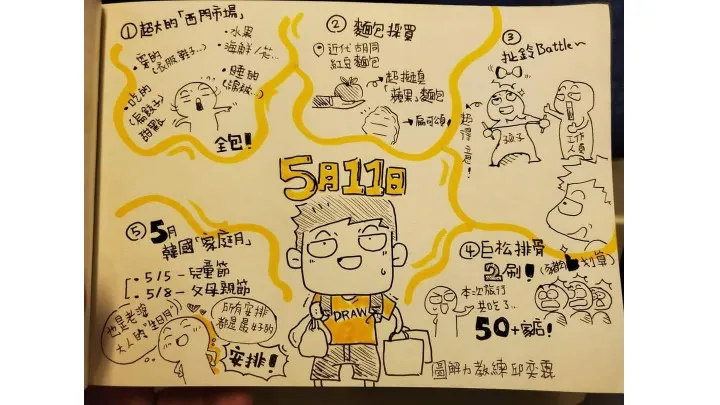 ① 超大的「西門市場」
・水果
・海鮮
・穿的
(衣服鞋子…)
・睡的
・吃的
甜點
全包!
② 麵包採買
近代胡同
紅豆麵包
超擬真
「蘋果」麵包
扁可頌!
③
扯鈴Battle~
超得意!
孩子
工作人員
5月11日
DRAW
④ 巨松排骨
2刷!
划算)
本次旅行
共吃了…
50+家店!
⑤ 5月
韓國「家庭月」
5/5-兒童節
5/8-父母親節
也是老婆
大人的「生日月」
所有安排
都是最好的
安排!
圖解力教練邱奕霖